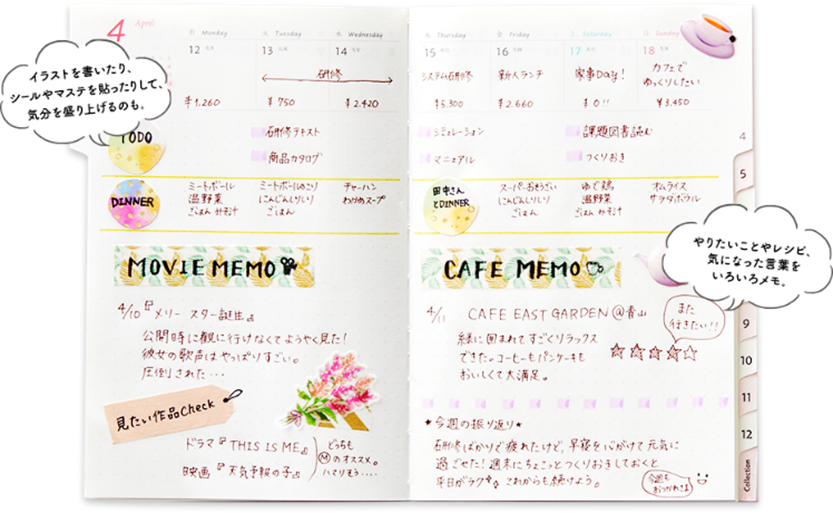 4 April
月 Monday
火 Tuesday
水 Wednesday
12
13
14
研修
¥1.260
¥750
¥2.420
イラストを書いたり、
シールやマステを貼ったりして、
気分を盛り上げるのも。
TODO
研修テキスト
商品カタログ
DINNER
ミートボール
温野菜
ごはん みそ汁
ミートボールのこり
にんじんしりしり
ごはん
チャーハン
わかめスープ
MOVIE MEMO
4/10『メリー スター誕生』
公開時に観に行けなくてようやく見た!
彼女の歌声はやっぱりすごい。
圧倒された・・・
見たい作品Check
ドラマ『THIS IS ME』
映画『天気予報の子』
どっちも
Ⓜのオススメ。
ハマりそう・・・・
木 Thursday
金 Friday
土 Saturday
日 Sunday
15
16
17
18
システム研修
新人ランチ
家事Day!
カフェで
ゆっくりしたい
¥5.300
¥2.660
¥0!!
¥3.450
シミュレーション
マニュアル
課題図書読む
つくりおき
田中さん
とDINNER
スーパーおそうざい
にんじんしりしり
ごはん
ゆで鶏
温野菜
ごはん みそ汁
オムライス
サラダボウル
やりたいことやレシピ、
気になった言葉を
いろいろメモ。
CAFE MEMO
4/11 CAFE EAST GARDEN @青山
緑に囲まれてすごくリラックス
できた。コーヒーもパンケーキも
おいしくて大満足。
また
行きたい!!
★今週の振り返り★
研修ばかりで疲れたけど、早寝を心がけて元気に
過ごせた!週末にちょこっとつくりおきしておくと
平日がラク これからも続けよう。
今週も
おつかれさま
4
5
9
10
11
12
Collection